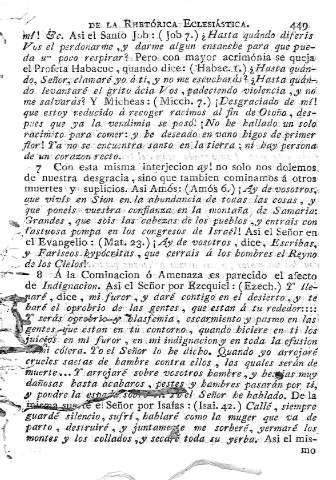 DE LA RHETÓRICA ECLESIÁSTICA. 449
mí! &c. Asi el Santo Job: (Job 7.) ¿Hasta quándo diferis
Vos el perdonarme, y darme algun ensanche para que pue-
da un poco respirar? Pero con mayor acrimónia se queja
el Profeta Habacuc, quando dice: (Habac. 1.) ¿Hasta quán-
do, Señor, clamaré yo á ti, y no me escucharás? ¿Hasta quán-
do levantaré el grito ácia Vos, padeciendo violencia, y no
me salvarás? Y Micheas: (Micch. 7.) ¡Desgraciado de mí!
que estoy reducido á recoger racimos al fin de Otoño, des-
pues que ya la vendimia se pasó! ¡No he hallado un solo
racimito para comer: y he deseado en vano bigos de primer
flor! Ya no se encuentra santo en la tierra; ni hay persona
de un corazon recto.
7 Con esta misma interjecion ay! no solo nos dolemos
de nuestra desgracia, sino que tambien conminamos á otros
muertes y suplicios. Asi Amós: (Amós 6.) ¡Ay de vosotros,
que vivís en Sion en la abundancia de todas las cosas, y
que poneis vuestra confianza en la montaña de Samaria:
Grandes, que sois las cabezas de los pueblos, y entrais con
fastuosa pompa en los congresos de Israél! Asi el Señor en
el Evangelio: (Mat. 23.) ¡Ay de vosotros, dice, Escribas,
y Fariseos hypócritas, que cerrais á los hombres el Reyno
de los Cielos!
8 Á la Cominacion ó Amenaza es parecido el afecto
de Indignacion. Asi el Señor por Ezequiel: (Ezech.) Y lle-
naré, dice, mi furor, y daré contigo en el desierto, y te
haré el oprobrio de las gentes, que están á tu rededor:...
Y serás oprobrio y blasfemia, escarmiento y pasmo en las
gentes que estan en tu contorno, quando hiciere en ti los
juicios en mi furor, en mi indignacion y en toda la efusion
de mi cólera. Yo el Señor lo he dicho. Quando yo arrojaré
crueles saetas de hambre contra ellos, las quales serán de
muerte... Y arrojaré sobre vosotros hambre, y bestias muy
dañosas hasta acabaros, pestes y hambres pasarán por tí,
y pondré la espada sobre... Yo el Señor he hablado. De la
misma suerte el Señor por Isaías: (Isai. 42.) Callé, siempre
guardé silencio, sufrí, hablaré como la muger que va de
parto, destruiré, y juntamente me sorberé, yermaré los
montes y los collados, y secaré toda su yerba. Asi el mis-
mo